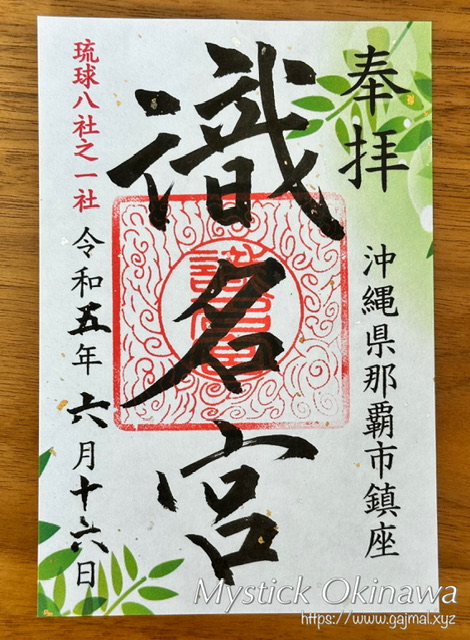 奉拝
沖縄県那覇市鎮座
識名宮
琉球八社之一社
令和五年六月十六日
Mystick Okinawa
https://www.gajmal.xyz